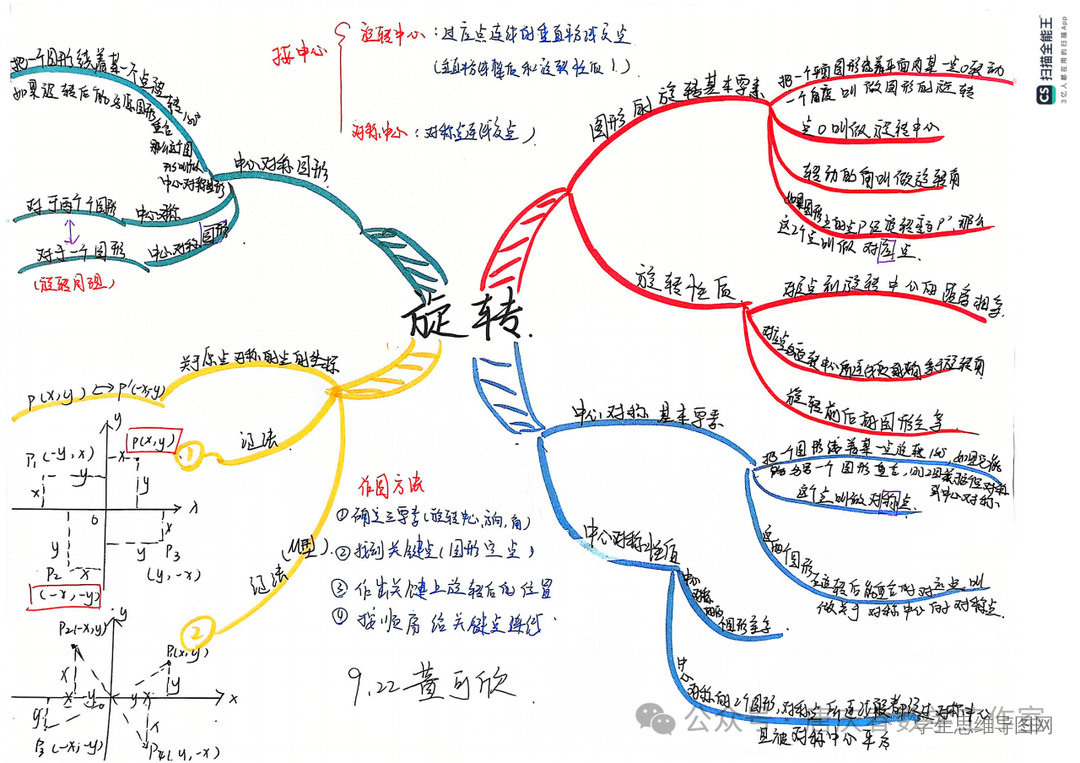 旋转
找中心
旋转中心：对应点连线的垂直平分线交点
(垂直平分线
对称中心：对称点连线交点)
把一个图形绕着某一个点旋转180°
如果旋转后的
重合
那么这个图
形叫做
中心对称图形
中心对称图形
对于两个图形
中心对称
对于一个图形
中心对称图形
图形的旋转基本要素
把一个平面图形绕着平面内某一点O转动
一个角度叫做图形的旋转
点O叫做旋转中心
转动的角叫做旋转角
如果图形上的点P经旋转变为P'，那么
这2个点叫做对应点.
旋转性质
对应点到旋转中心的距离相等
对应点与旋转中心所连线段的夹角等于旋转角
旋转前后的图形全等
关于原点对称的点的坐标
P(x,y) ↔ P'(-x,-y)
① 记法
y
P(x,y)
P₁(-y, x)
x
y
x
y
0
x
y
P₂
x
x
y
P₃
(y,-x)
(-x,-y)
② 记法(M型)
y
P₂(-x,y)
P₁(x,y)
x
y
x
P₃(-x,-y)
P₄(y,-x)
作图方法
① 确定三要素(旋转中心,方向,角)
② 找到关键点(图形定点)
③ 作出关键点旋转后的位置
④ 按顺序给关键点连线.
9.22 黄可欣
中心对称基本要素
把一个图形绕着某一点旋转180°,如果它能
够与另一个图形重合,则2图形
中心对称.
这个点叫做对称点.
这两个图形在旋转后能重合的对应点叫
做关于对称中心的对称点.
中心对称性质
中心
对称
的2个
图形全等
中心
对称的2个图形,对称点所连线段都经过对称中心
且被对称中心平分
CS 扫描全能王
3亿人都在用的扫描App
公众号
学生思维导图网